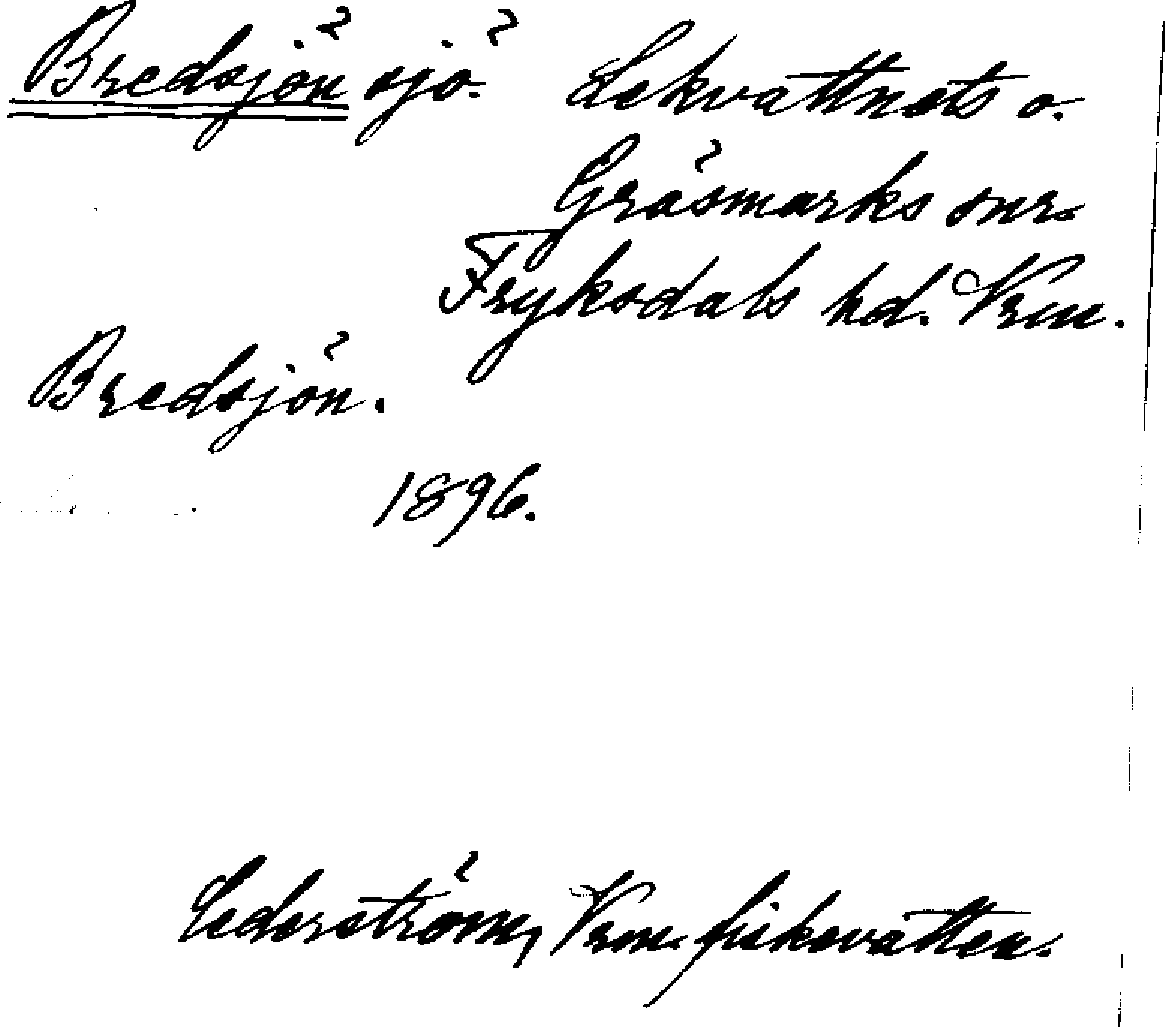 Bredsjön sjö. Lekvattnets o.
Gräsmarks snr.
Fryksdals hd. Vrm.
Bredsjön.
1896.
Cederström, Vrm. fiskevatten.